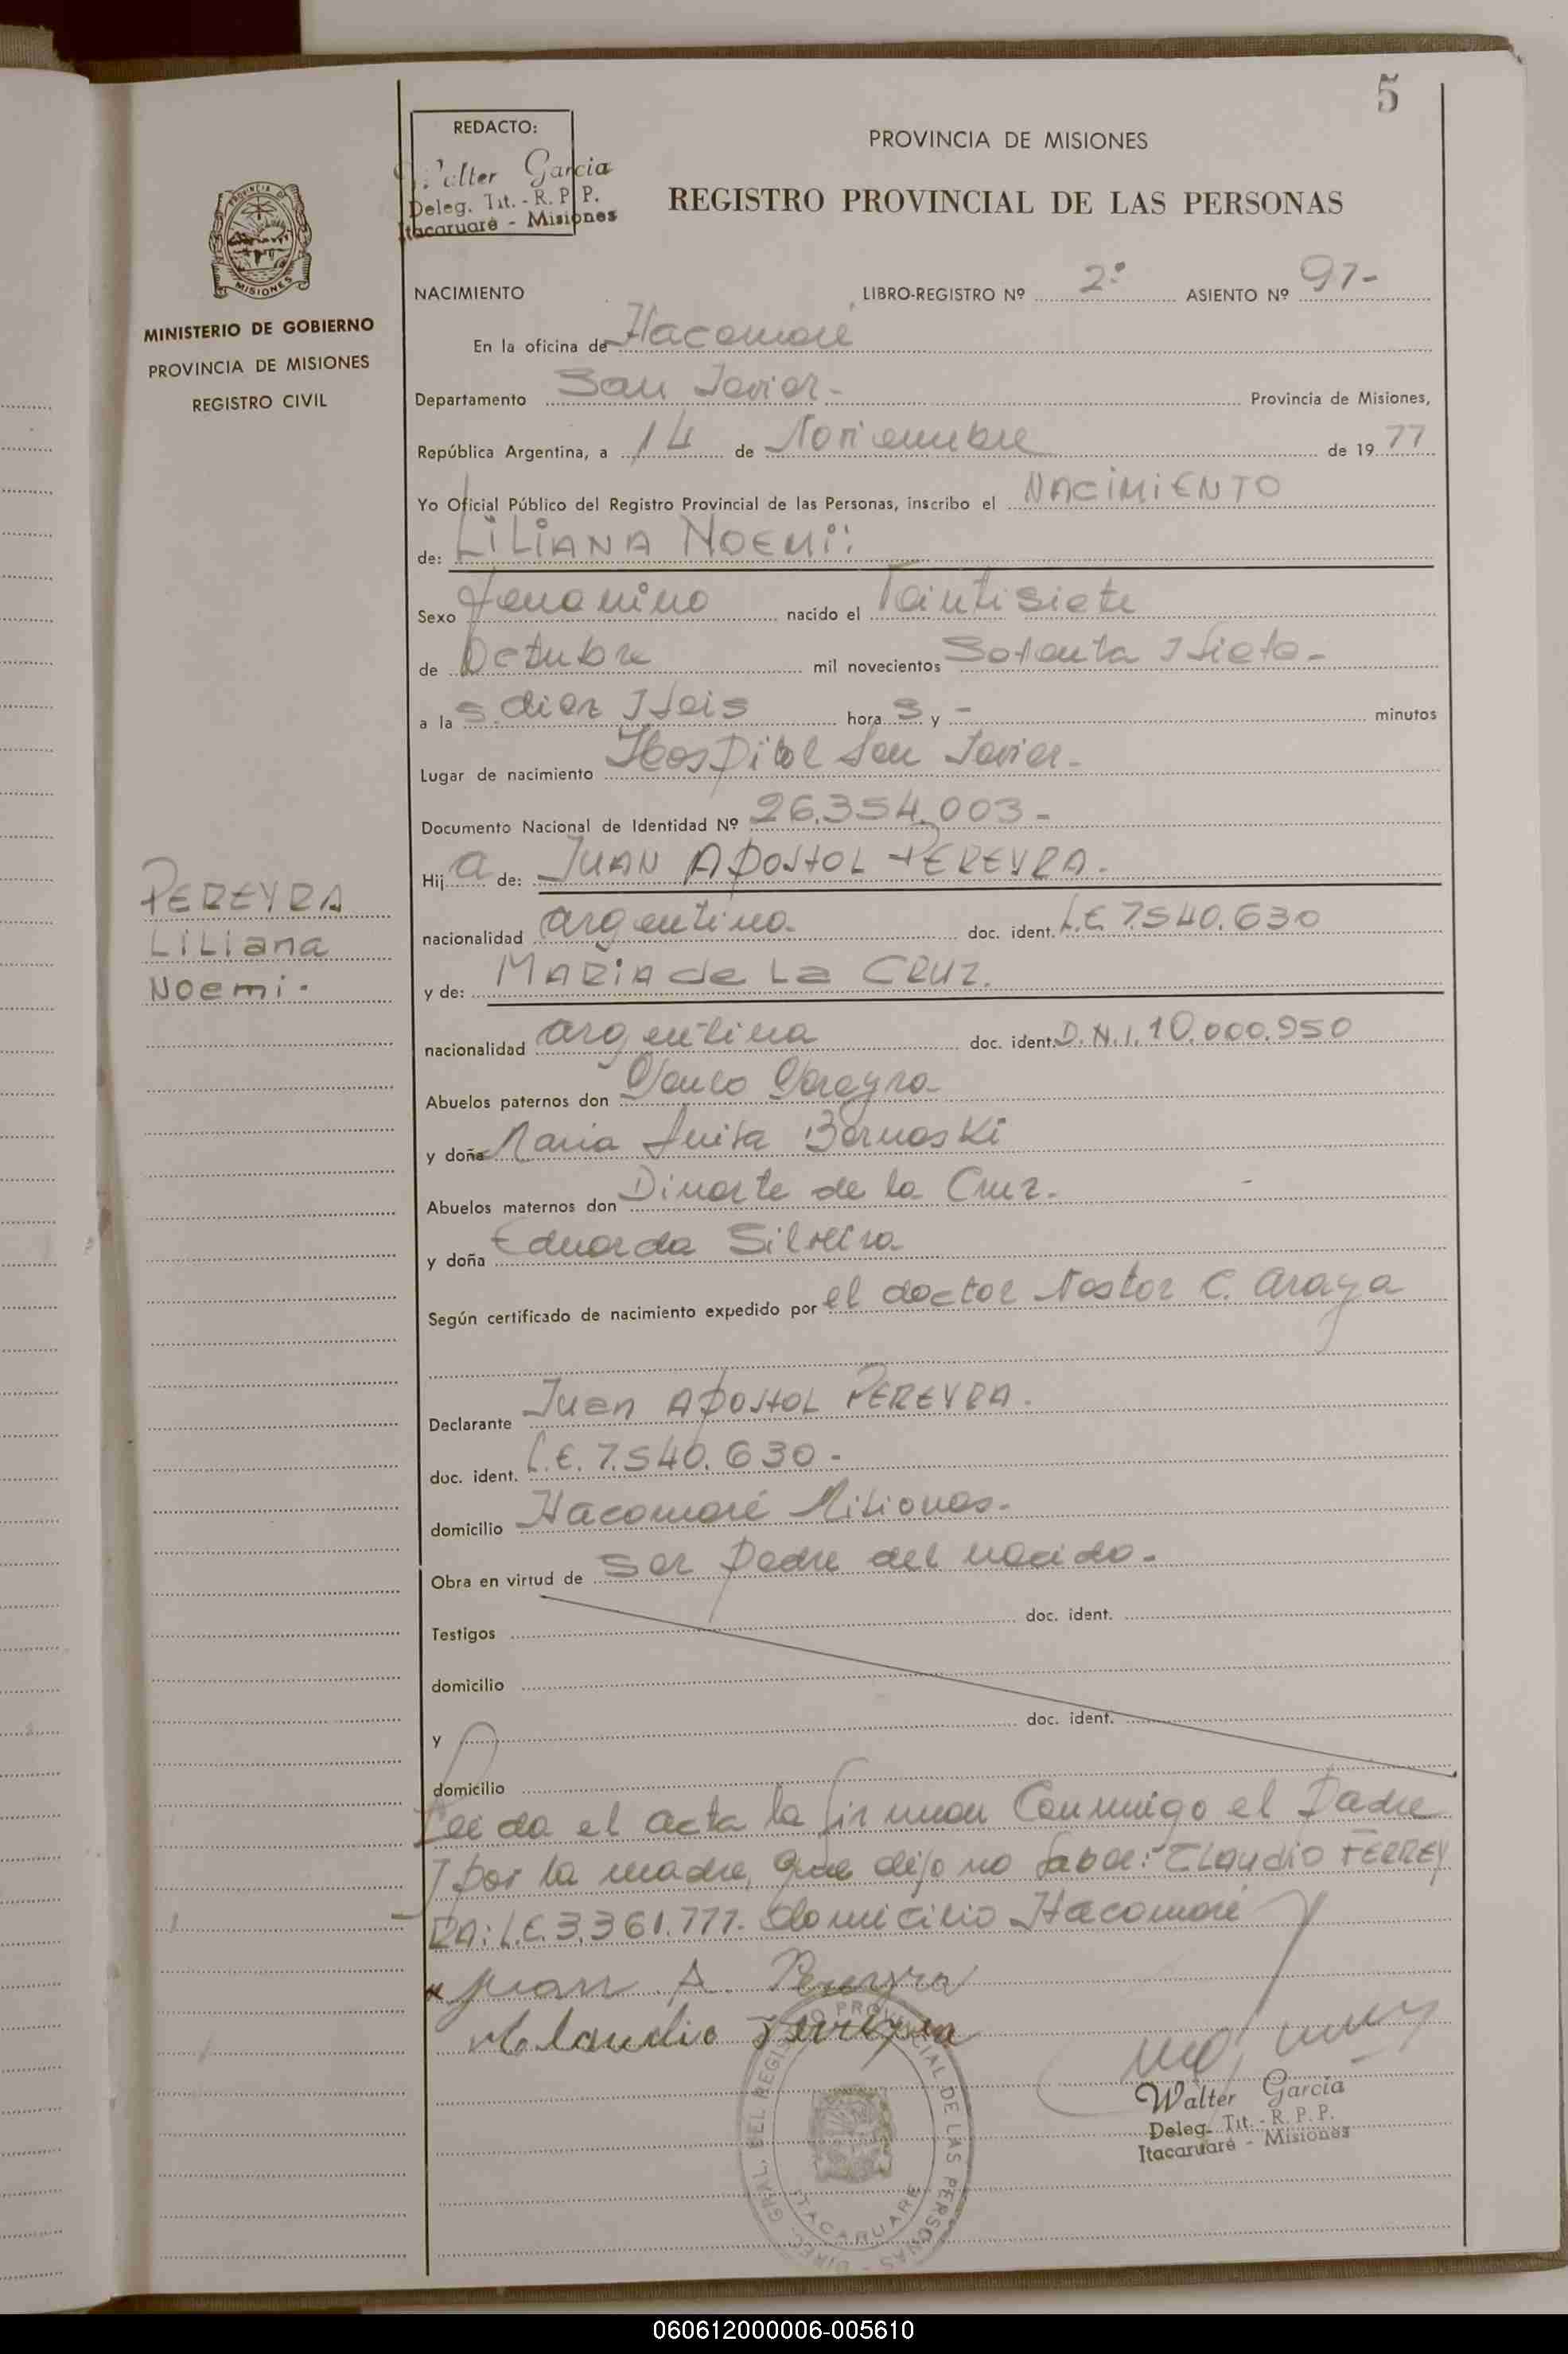 5
REDACTO:
Walter Garcia
Deleg. Tit. - R. P. P.
Itacaruaré - Misiones
PROVINCIA DE MISIONES
REGISTRO PROVINCIAL DE LAS PERSONAS
MISIONES
MINISTERIO DE GOBIERNO
PROVINCIA DE MISIONES
REGISTRO CIVIL
NACIMIENTO LIBRO-REGISTRO Nº 2º ASIENTO Nº 97-
En la oficina de Itacaruaré
Departamento San Javier - Provincia de Misiones,
República Argentina, a 14 de Noviembre de 1977
Yo Oficial Público del Registro Provincial de las Personas, inscribo el NACIMIENTO
de: LILIANA NOEMI:
Sexo femenino nacido el Veintisiete
de Octubre mil novecientos Setenta y siete -
a las diez y seis horas y - minutos
Lugar de nacimiento Hospital San Javier -
Documento Nacional de Identidad Nº 26.354.003 -
Hija de: JUAN APOSTOL PEREYRA.
PEREYRA
LILiana
Noemi.
nacionalidad argentina. doc. ident. L.E. 7.540.630
y de: MARIA de La CRUZ.
nacionalidad argentina doc. ident. D.N.I. 10.000.950
Abuelos paternos don Pereyra
y doña Maria Luisa Bernaski
Abuelos maternos don Dinarte de la Cruz.
y doña Eduarda Silveira
Según certificado de nacimiento expedido por el doctor Nestor C. Araya
Declarante Juan APOSTOL PEREYRA.
doc. ident. L.E. 7.540.630 -
domicilio Itacaruaré Misiones.
Obra en virtud de ser padre del nacido.
Testigos doc. ident.
domicilio
y doc. ident.
domicilio
Leida el acta la firman Conmigo el Padre
y por la madre, que dijo no saber: CLaudio FERREY
RA: L.E. 3.361.777. domicilio Itacaruaré
Juan A. Pereyra
Claudio Ferreyra
Walter Garcia
Deleg. Tit. - R. P. P.
Itacaruaré - Misiones
DIREC. GRAL. DEL REGISTRO PROVINCIAL DE LAS PERSONAS
ITACARUARE
060612000006-005610